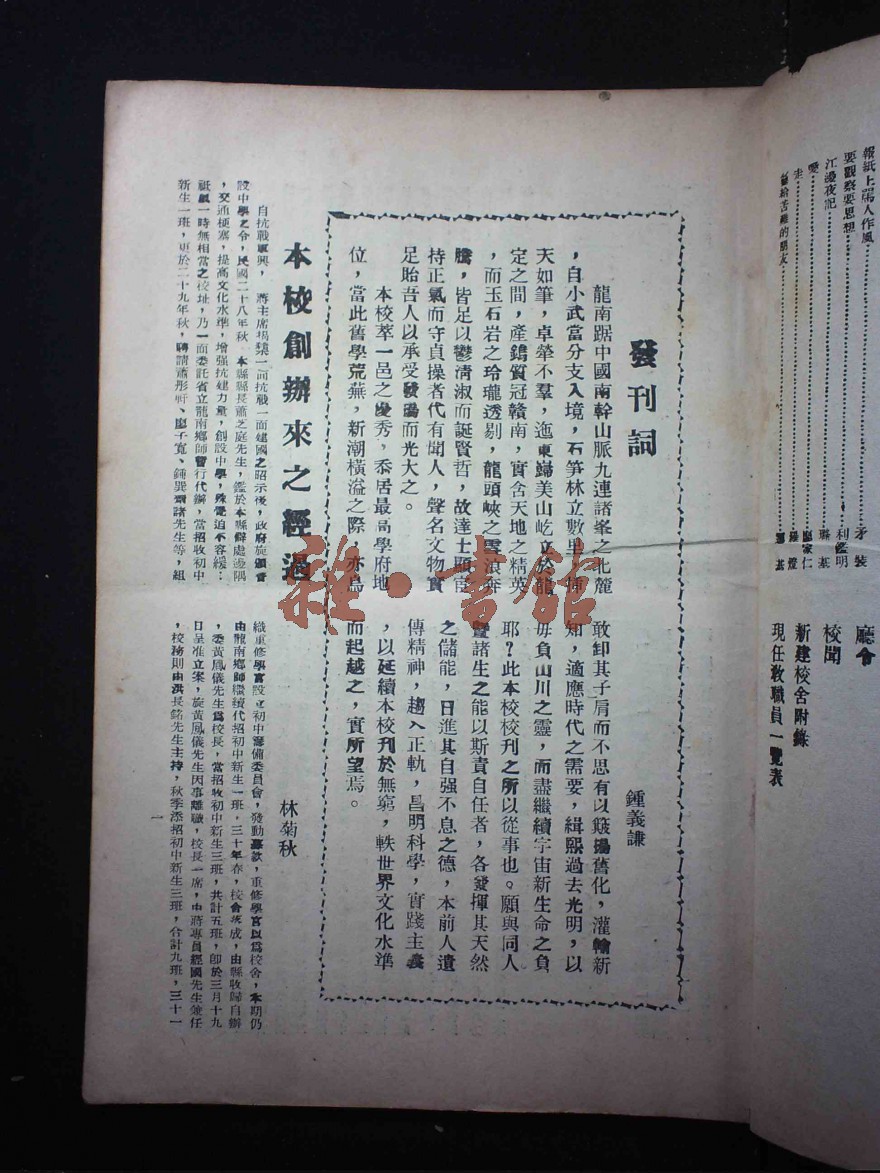 報紙上罵人作風……矛裝
要觀察要思想……利鑑明
江邊夜記
愛……廖家仁
走
給苦難的朋友
廳會
校聞
新建校舍附錄
現任教職員一覽表
發刊詞
鍾義謙
龍南踞中國南幹山脈九連諸峯之北麓
，自小武當分支入境，石笋林立數里，挿
天如筆，卓犖不羣，迤東歸美山屹立於龍
定之間，產鎢質冠贛南，實含天地之精英
，而玉石岩之玲瓏透剔，龍頭峽之雪浪奔
騰，皆足以鬱清淑而誕賢哲，故達士顯宦
持正氣而守貞操者代有聞人，聲名文物實
足貽吾人以承受發揚而光大之。
本校萃一邑之優秀，忝居最高學府地
位，當此舊學荒蕪，新潮橫溢之際，亦烏
敢卸其子肩而不思有以簸揚舊化，灌輸新
知，適應時代之需要，緝熙過去光明，以
毋負山川之靈，而盡繼續宇宙新生命之負
耶？此本校校刊之所以從事也。願與同人
暨諸生之能以斯責自任者，各發揮其天然
之儲能，日進其自强不息之德，本前人遺
傳精神，趨入正軌，昌明科學，實踐主義
，以延續本校刊於無窮，軼世界文化水準
而起越之，實所望焉。
本校創辦來之經過
林菊秋
自抗戰軍興，蔣主席揭櫫一面抗戰一面建國之昭示後，政府旋頒普
設中學之令，民國二十八年秋，本縣縣長蕭之庭先生，鑑於本縣僻處邊隅
，交通梗塞，提高文化水準，增强抗建力量，創設中學，殊覺迫不容緩：
祇緣一時無相當之校址，乃一面委託省立龍南鄉師暫行代辦，當招收初中
新生一班，更於二十九年秋，聘請蕭彤軒、廖子寬、鍾巽爾諸先生等，組
織重修學宮設立初中籌備委員會，發動募款，重修學宮以爲校舍，本期仍
由龍南鄉師繼續代招初中新生一班，三十年春，校舍落成，由縣收歸自辦
，委黃鳳儀先生爲校長，當招收初中新生三班，共計五班，卽於三月十九
日呈准立案，旋黃鳳儀先生因事離職，校長一席，由蔣專員經國先生兼任
，校務則由洪長銘先生主持，秋季添招初中新生三班，合計九班，三十一
一
雜·書館